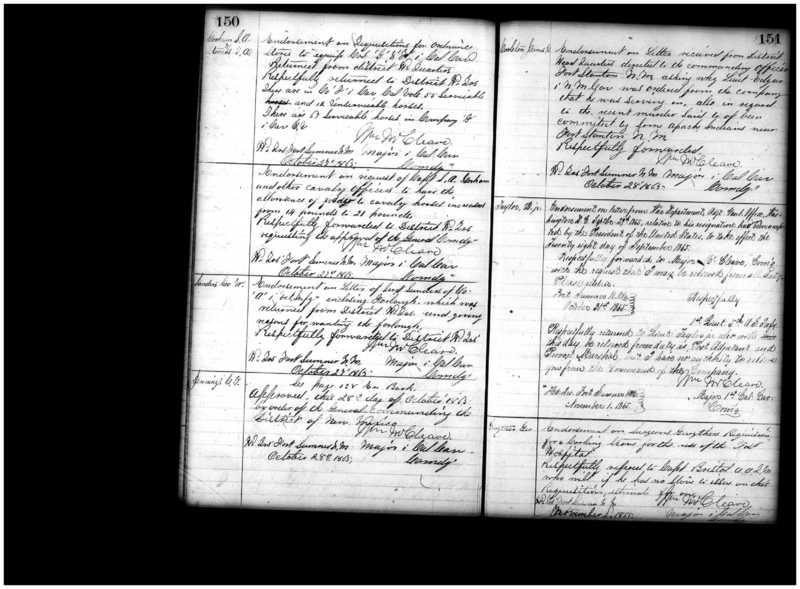 150
Endorsement on Requisitions for Ordnance
Stores to equip Cos. "E" & "F" 1 Cal Cav
Returned from district Hd Quarters
Respectfully returned to District Hd Qrs
There are in Co "F" 1 Cav Cal Vols 55 Serviceable
and 12 Unserviceable horses.
There are 53 Serviceable horses in Company
1 Cav C.V.
Wm McCleave
Hd Qrs Fort Sumner N.M. Major 1 Cal Cav
October 23d 1865. Comdg"
Endorsement on request of Capt
and other cavalry officers to have the
allowance of to cavalry horses increased
from 14 pounds to 21 pounds.
Respectfully forwarded to District Hd Qrs
requesting the approval of the General Comdg
Wm McCleave
Hd Qrs Fort Sumner N.M. Major 1 Cal Cav
October 23d 1865. Comdg"
Endorsement on Letter of of Co.
enclosing Furlough which was
returned from District Hd Qrs and giving
reasons for wanting the furlough.
Respectfully forwarded to District Hd Qrs
Wm McCleave.
Hd Qrs Fort Sumner N.M. Major 1 Cal Cav
October 23d 1865. Comdg"
See page 128 En Book
Jennings
Approved, this 28th day of October 1865
by order of the General Commanding the
District of New Mexico
Wm McCleave
Hd Qrs Fort Sumner N.M. Major 1 Cal Cav
October 28th 1865. Comdg"
151
Endorsement on Letter received from District
Head Quarters directed to the commanding officer
Fort Stanton N.M. asking why Lieut
1 N.M. Cav was ordered from the company
that he was serving in, also in regard
to the recent murder said to of been
committed by from Apache Indians near
Fort Stanton N.M
Respectfully forwarded
Wm McCleave
Hd Qrs Fort Sumner N.M. Major 1 Cal Cav
October 28 1865. Comdg"
Taylor
Endorsement on letter from War Department, Adjt. Genl. Office, Washington
D.C. Septbr 29th 1865, relative to his resignation has been accepted
by the President of the United States, to take effect the
Twenty eight day of September 1865.
Respectfully forwarded to Major McCleave, Comdg
with the request that I may be relieved from all duty
Fort Sumner N.M. Respectfully
October 31st 1865
1st Lieut. 5th U.S. Infy.
Respectfully returned to Lieut. Taylor
this day be relieved from duty as Post Adjutant and
Provost Marshal, but I have no authority to relieve
you from the command of the Company.
Wm McCleave
Major 1st Cal. Cav.
Hd Qrs. Fort Sumner N.M. Comdg
November 1. 1865.
Endorsement on Surgeon Requisition
for a Cooking Stove for the use of the Post
Hospital
Respectfully referred to Capt Bristol
who will if he has no Stove to issue on this
Requisition,
Wm McCleave
Hd Qrs Fort Sumner N.M. Major 1 Cal Cav
November 1865.